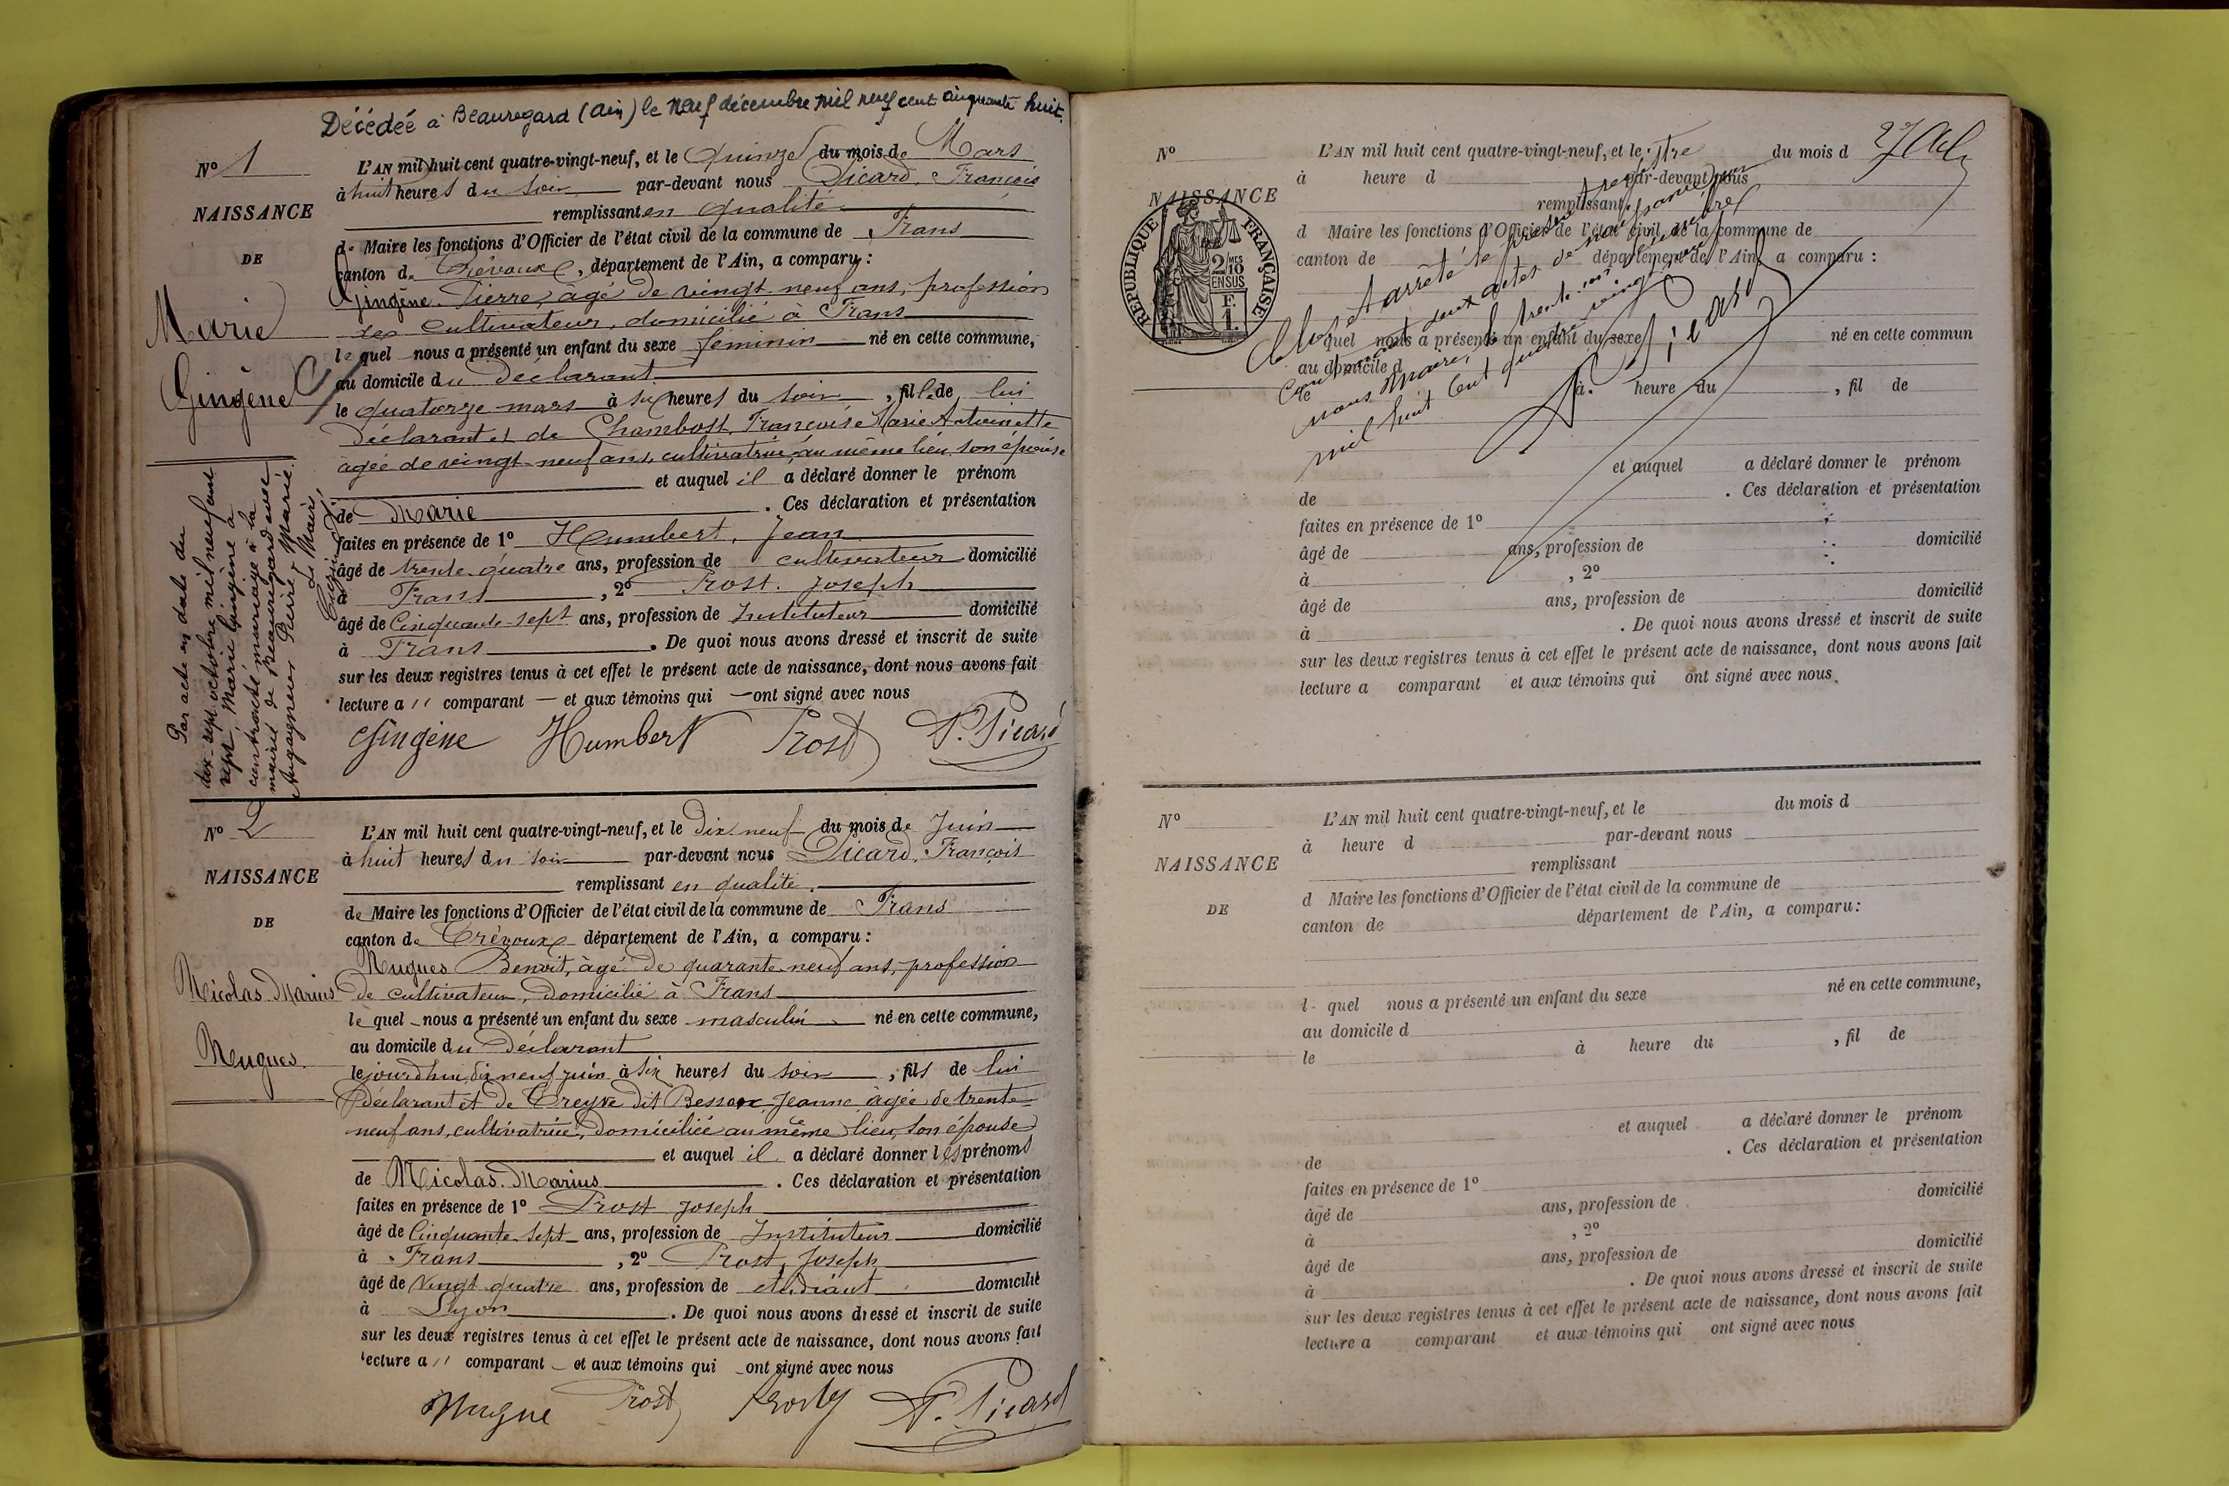 Décédée à Beauregard (Ain) le neuf décembre mil neuf cent cinquante huit.
N° 1
NAISSANCE
DE
Marie
Gingène
L'AN mil huit cent quatre-vingt-neuf, et le Quinze du mois de Mars
à huit heures du soir par-devant nous Picard, François
remplissant en qualité
de Maire les fonctions d'Officier de l'état civil de la commune de Frans
canton de Trévoux, département de l'Ain, a comparu :
Gingène Pierre, âgé de vingt-neuf ans, profession
de cultivateur, domicilié à Frans
lequel nous a présenté un enfant du sexe féminin né en cette commune,
au domicile du déclarant
le quatorze mars à six heures du soir, fille de lui
déclarant et de Chambost, Françoise Marie Antoinette
âgée de vingt-neuf ans, cultivatrice, au même lieu, son épouse
et auquel il a déclaré donner le prénom
de Marie. Ces déclaration et présentation
faites en présence de 1° Humbert, Jean
âgé de trente-quatre ans, profession de cultivateur domicilié
à Frans, 2° Prost, Joseph
âgé de Cinquante-sept ans, profession de Instituteur domicilié
à Frans. De quoi nous avons dressé et inscrit de suite
sur les deux registres tenus à cet effet le présent acte de naissance, dont nous avons fait
lecture au comparant et aux témoins qui ont signé avec nous
Gingène Humbert Prost F. Picard
Par acte en date du
dix-sept octobre mil neuf cent
sept, Marie Gingène a
contracté mariage à la
mairie de Beauregard avec
Augagneur Pierre Marie
Le Maire
N° 2
NAISSANCE
DE
Nicolas Marius
Nugues
L'AN mil huit cent quatre-vingt-neuf, et le dix-neuf du mois de Juin
à huit heures du soir par-devant nous Picard, François
remplissant en qualité
de Maire les fonctions d'Officier de l'état civil de la commune de Frans
canton de Trévoux département de l'Ain, a comparu :
Nugues Benoit, âgé de quarante-neuf ans, profession
de cultivateur, domicilié à Frans
lequel nous a présenté un enfant du sexe masculin né en cette commune,
au domicile du déclarant
le jourd'hui, dix neuf juin à six heures du soir, fils de lui
déclarant et de Treyve dit Besson, Jeanne âgée de trente
neuf ans, cultivatrice, domiciliée au même lieu, son épouse
et auquel il a déclaré donner les prénoms
de Nicolas Marius. Ces déclaration et présentation
faites en présence de 1° Prost Joseph
âgé de Cinquante-sept ans, profession de Instituteur domicilié
à Frans, 2° Prost, Joseph
âgé de vingt-quatre ans, profession de étudiant domicilié
à Lyon. De quoi nous avons dressé et inscrit de suite
sur les deux registres tenus à cet effet le présent acte de naissance, dont nous avons fait
lecture au comparant et aux témoins qui ont signé avec nous
Nugue Prost Prost F. Picard
N°
NAISSANCE
RÉPUBLIQUE FRANÇAISE
2/10 MES
EN SUS
F.
1.
L'AN mil huit cent quatre-vingt-neuf, et le du mois d
à heure d par-devant nous
remplissant
d Maire les fonctions d'Officier de l'état civil de la commune de
canton de département de l'Ain, a comparu :
quel nous a présenté un enfant du sexe né en cette commun
au domicile d
le à heure du , fil de
et auquel a déclaré donner le prénom
de . Ces déclaration et présentation
faites en présence de 1°
âgé de ans, profession de domicilié
à , 2°
âgé de ans, profession de domicilié
à . De quoi nous avons dressé et inscrit de suite
sur les deux registres tenus à cet effet le présent acte de naissance, dont nous avons fait
lecture a comparant et aux témoins qui ont signé avec nous
Clos et arrêté le présent registre
contenant deux actes de naissance par
nous Maire, le trente un décembre
mil huit cent quatre vingt neuf
F. Picard
N°
NAISSANCE
DE
L'AN mil huit cent quatre-vingt-neuf, et le du mois d
à heure d par-devant nous
remplissant
d Maire les fonctions d'Officier de l'état civil de la commune de
canton de département de l'Ain, a comparu :
l quel nous a présenté un enfant du sexe né en cette commune,
au domicile d
le à heure du , fil de
et auquel a déclaré donner le prénom
de . Ces déclaration et présentation
faites en présence de 1°
âgé de ans, profession de domicilié
à , 2°
âgé de ans, profession de domicilié
à . De quoi nous avons dressé et inscrit de suite
sur les deux registres tenus à cet effet le présent acte de naissance, dont nous avons fait
lecture a comparant et aux témoins qui ont signé avec nous